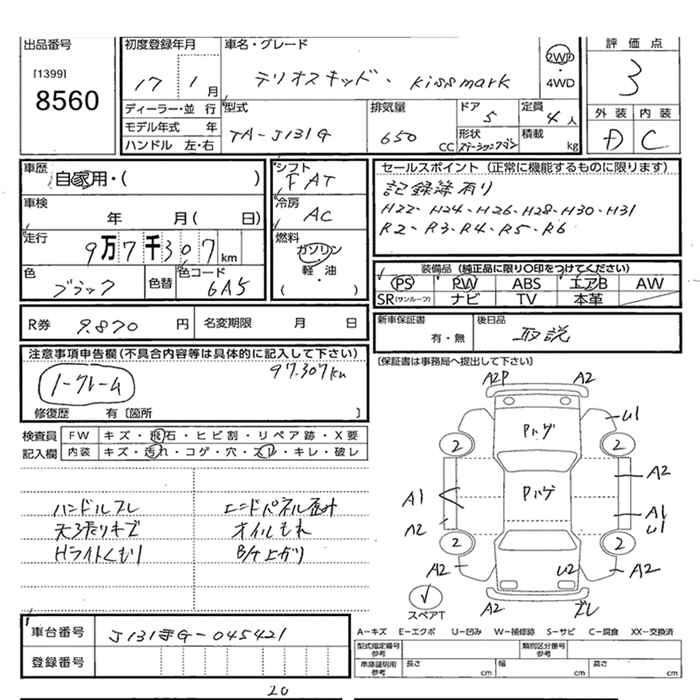 出品番号
[1399]
8560
初度登録年月
17年1月
車名・グレード
テリオスキッド・kissmark
2WD・4WD
評価点
3
ディーラー・並行
モデル年式 年
ハンドル 左・右
型式
TA-J131G
排気量
650 CC
ドア
5
定員
4人
形状
ステーションワゴン
積載 kg
外装 内装
D C
車歴
自家用・( )
車検
年 月( 日)
走行
9万7千307km
色
ブラック
色替
色コード
6A5
シフト
FAT
冷房
AC
燃料
ガソリン・軽・油
( )
セールスポイント(正常に機能するものに限ります)
記録簿有り
H22・H24・H26・H28・H30・H31
R2・R3・R4・R5・R6
装備品(純正品に限り○印をつけてください)
PS PW ABS エアB AW
SR(サンルーフ) ナビ TV 本革
R券 9.870円 名変期限 月 日
新車保証書 有・無
後日品 取説
注意事項申告欄(不具合内容等は具体的に記入して下さい)
97.307km
ノークレーム
修復歴 有〔箇所 〕
〔保証書は事務局へ提出して下さい〕
検査員 FW キズ・飛石・ヒビ割・リペア跡・X要
記入欄 内装 キズ・汚れ・コゲ・穴・スレ・キレ・破レ
ハンドルスレ エンドパネル歪み
天張りキズ オイルもれ
Hライトくもり
A2P A2
Pハゲ U1
2 2
Pハゲ A2
A1 A1
A2 U1
2 2
A2 U2 A2
A2 ズレ
スペアT
車台番号 J131G-045421
登録番号
A-キズ E-エクボ U-凹み W-補修跡 S-サビ C-腐食 XX-交換済
型式指定番号参考 類別区分番号参考
車庫証明用参考 長さ cm 幅 cm 高さ cm
20